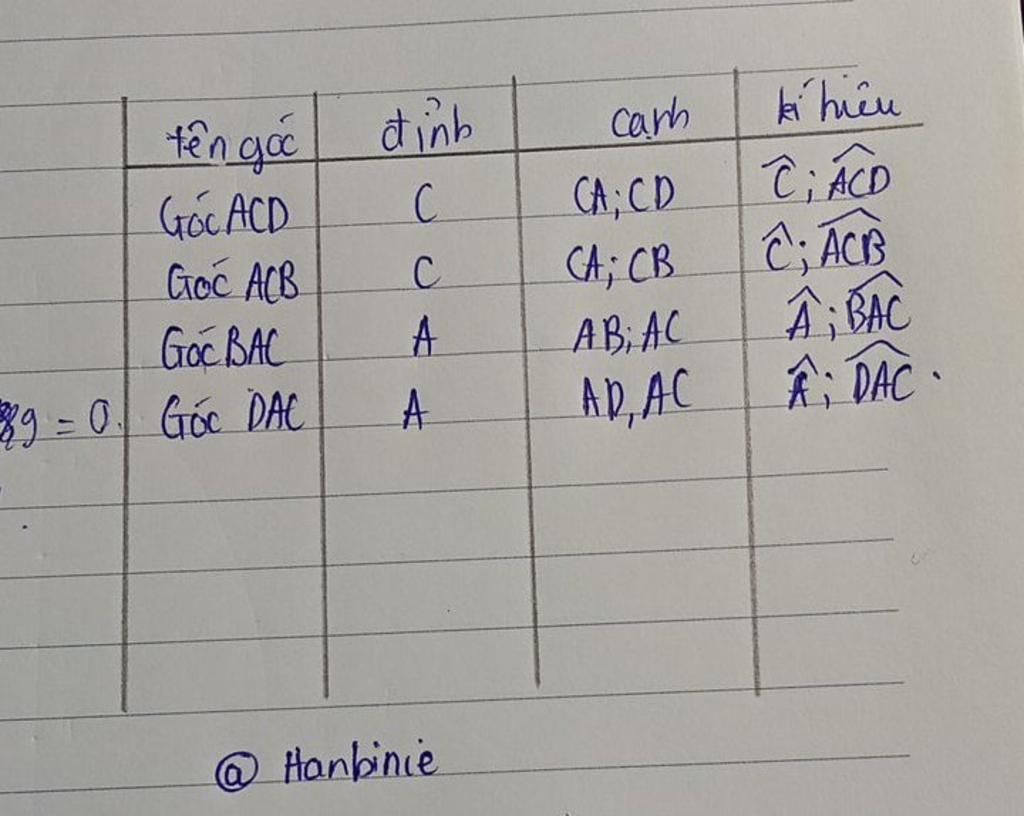 tên góc đỉnh cạnh kí hiệu
Góc ACD C CA; CD Ĉ; A͡CD
Góc ACB C CA; CB Ĉ; A͡CB
Góc BAC A AB; AC Â; B͡AC
g = 0. Góc DAC A AD, AC Â; D͡AC.
@ Hanbinie